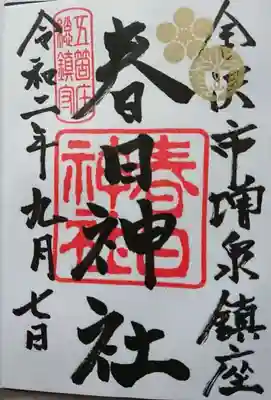 金沢市増泉鎮座
春日神社
春日
神社
五箇庄
総鎮守
令和二年九月七日